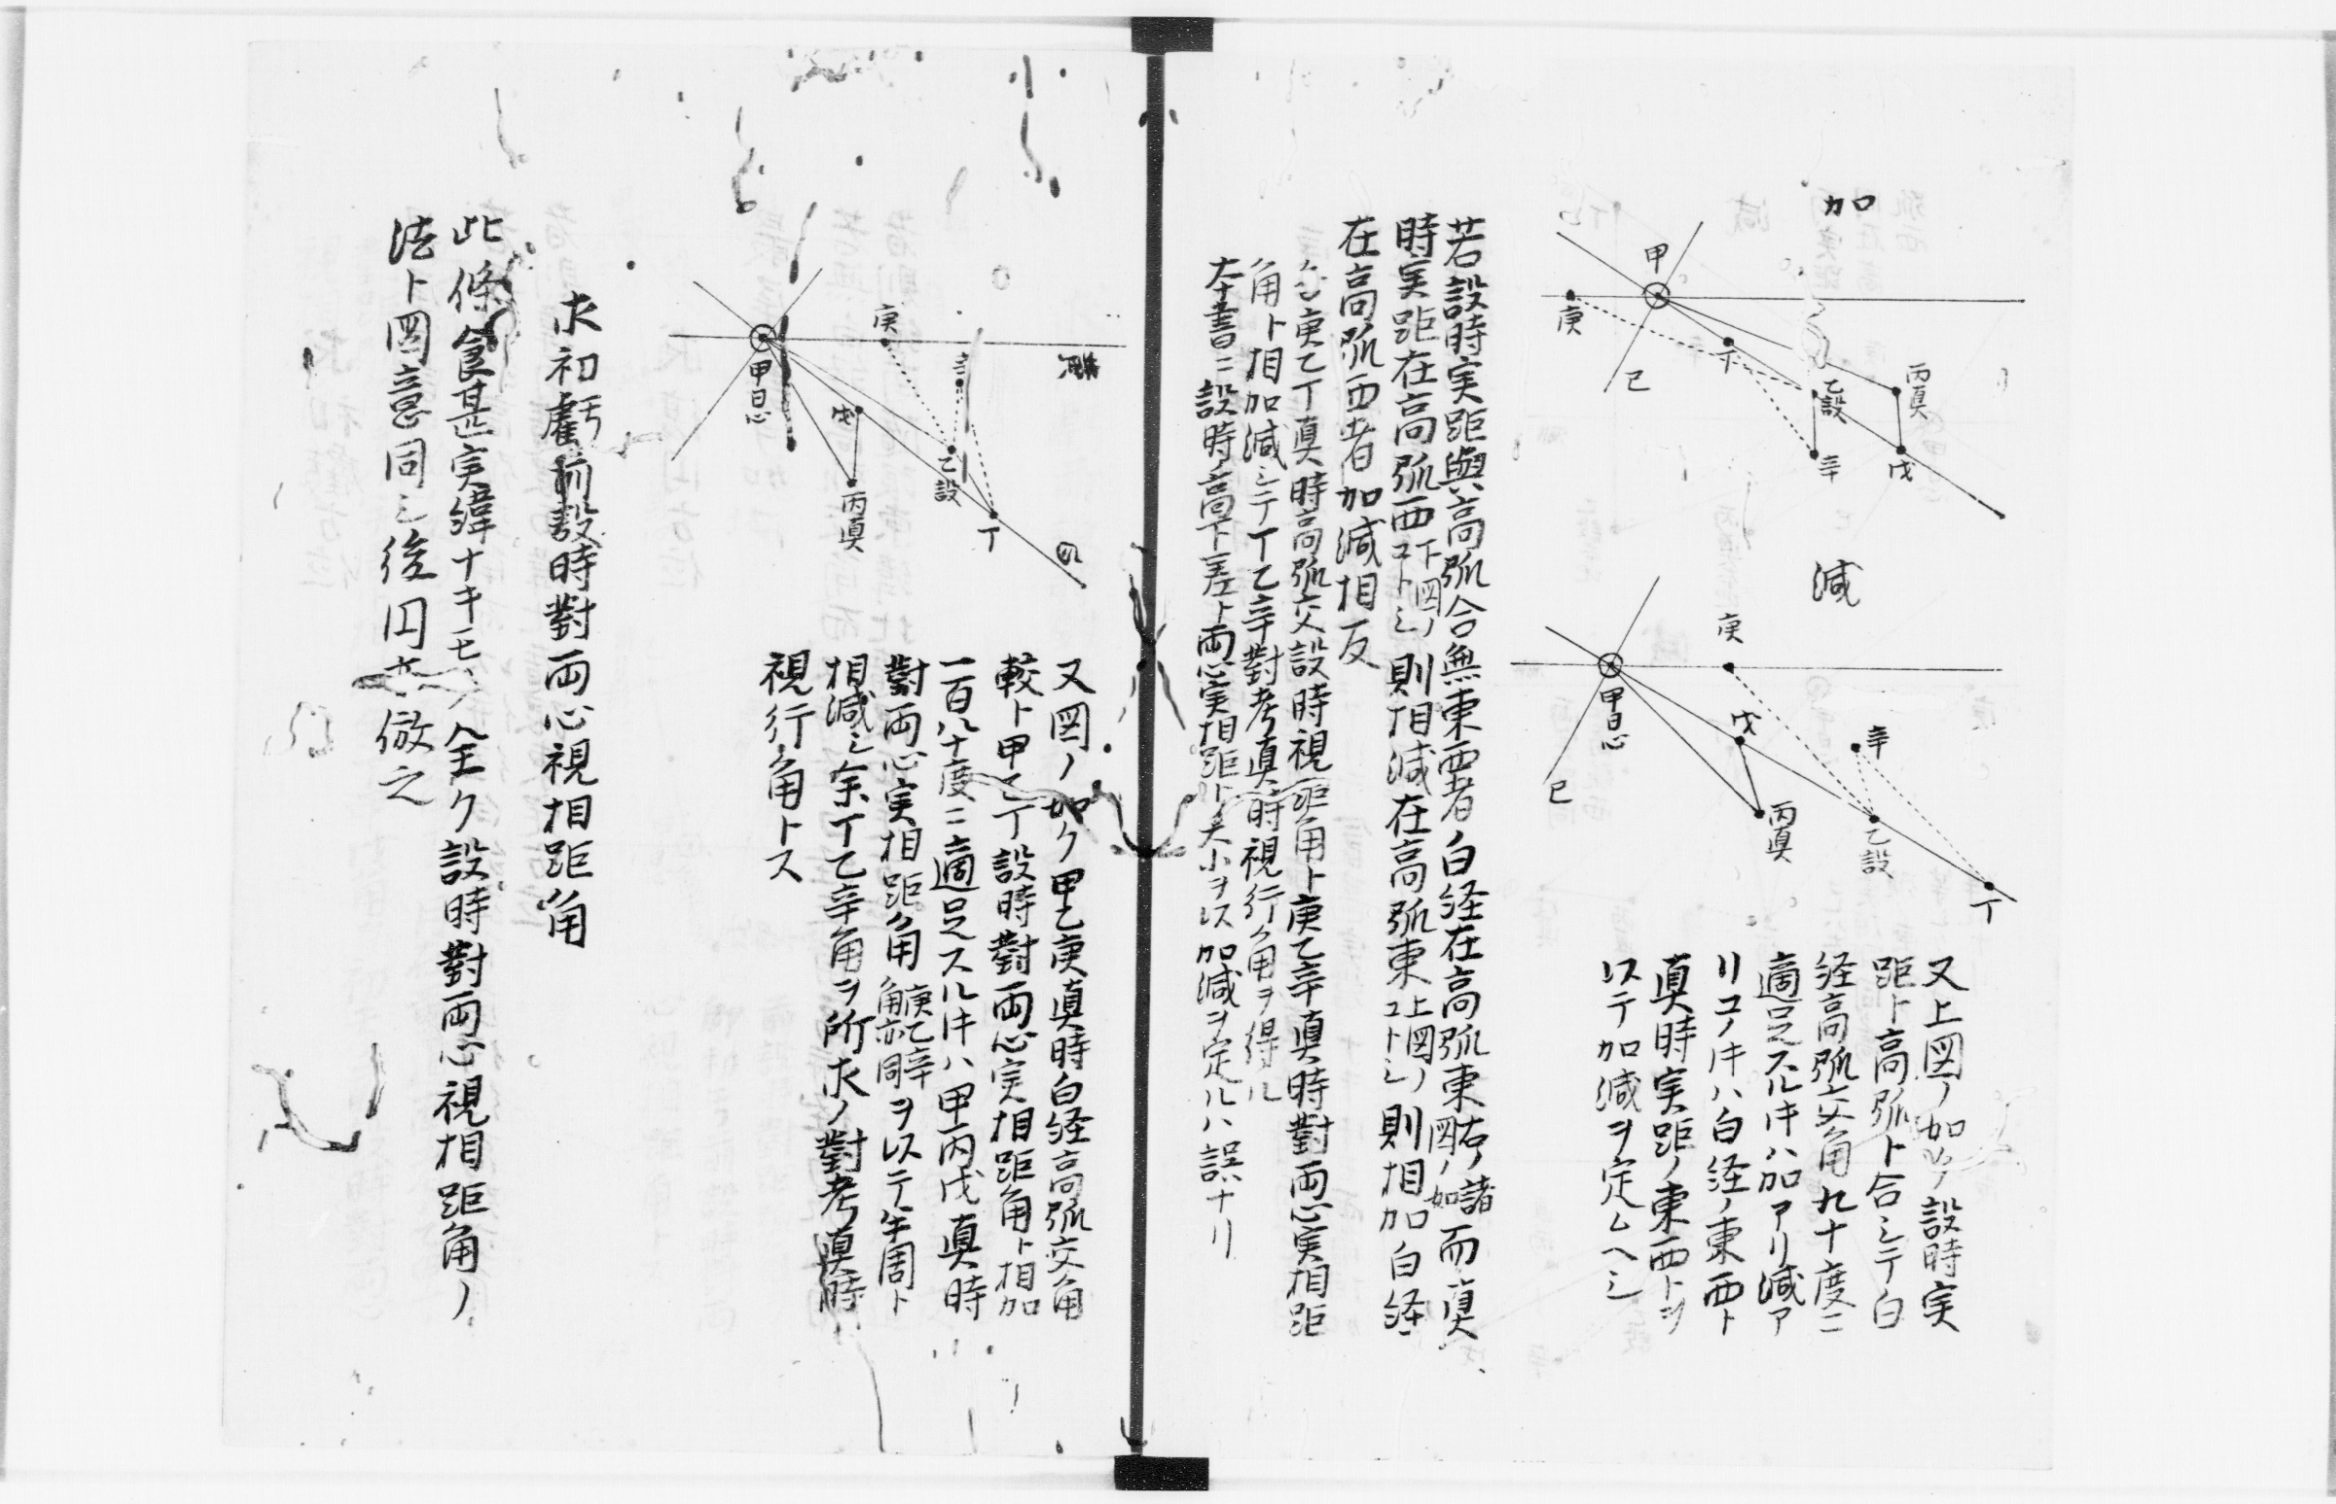 加
甲
庚
己
丁
乙設
丙真
辛
戊
減
庚
甲日心
己
戊
辛
丙真
乙設
丁
又上図ノ如ク設時実
距ト高弧ト合シテ白
経高弧交角九十度ニ
適足スルキハ加アリ減ア
リコノキハ白経ノ東西ト
真時実距ノ東西トヲ
以テ加減ヲ定ムヘシ
若設時実距與高弧合無東西者白経在高弧東右ノ諸図ノ如而真
時実距在高弧西下図ノコトシ則相減在高弧東上図ノコトシ則相加白経
在高弧西者加減相反
庚乙丁真時高弧交設時視距角ト庚乙辛真時對両心実相距
角ト相加減シテ丁乙辛對考真時視行角ヲ得ル
本書ニ設時高下差ト両心実相距ト大小ヲ以加減ヲ定ルハ誤ナリ
庚
辛
甲日心
戊
乙設
丙真
丁
又図ノ如ク甲乙庚真時白経高弧交角
較ト甲乙丁設時對両心実相距角ト相加
一百八十度ニ適足スルキハ甲丙戊真時
對両心実相距角庚乙辛角亦同ヲ以テ半周ト
相減シ余丁乙辛角ヲ所求ノ對考真時
視行角トス
求初虧前設時對両心視相距角
此條食甚実緯ナキモノ全ク設時對両心視相距角ノ
法ト図意同シ後円亦倣之